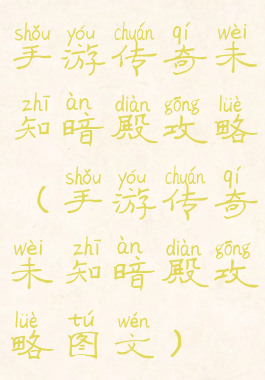 shǒu yóu chuán qí wèi
手游传奇未
zhī àn diàn gōng lüè
知暗殿攻略
shǒu yóu chuán qí
（手游传奇
wèi zhī àn diàn gōng
未知暗殿攻
lüè tú wén
略图文）